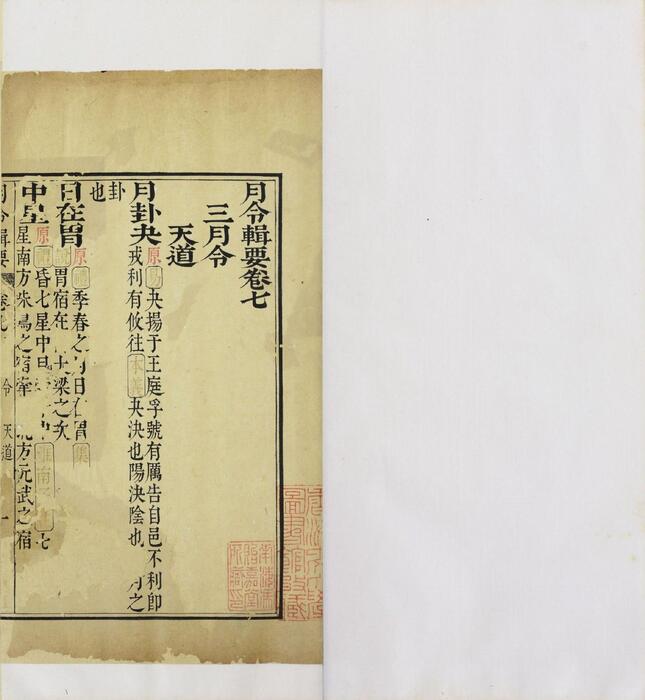 月令輯要卷七
三月令
天道
月卦夬 原 易 夬揚于王庭孚號有厲告自邑不利即
戎利有攸往 本義 夬決也陽決陰也 月之
卦
也
日在胃 原 季春之月日在胃 集
胃宿在 梁之次
中星 原 昏七星中 淮南 七
星南方朱鳥之宿牽 北方元武之宿
月令輯要 卷七 令 天道 一